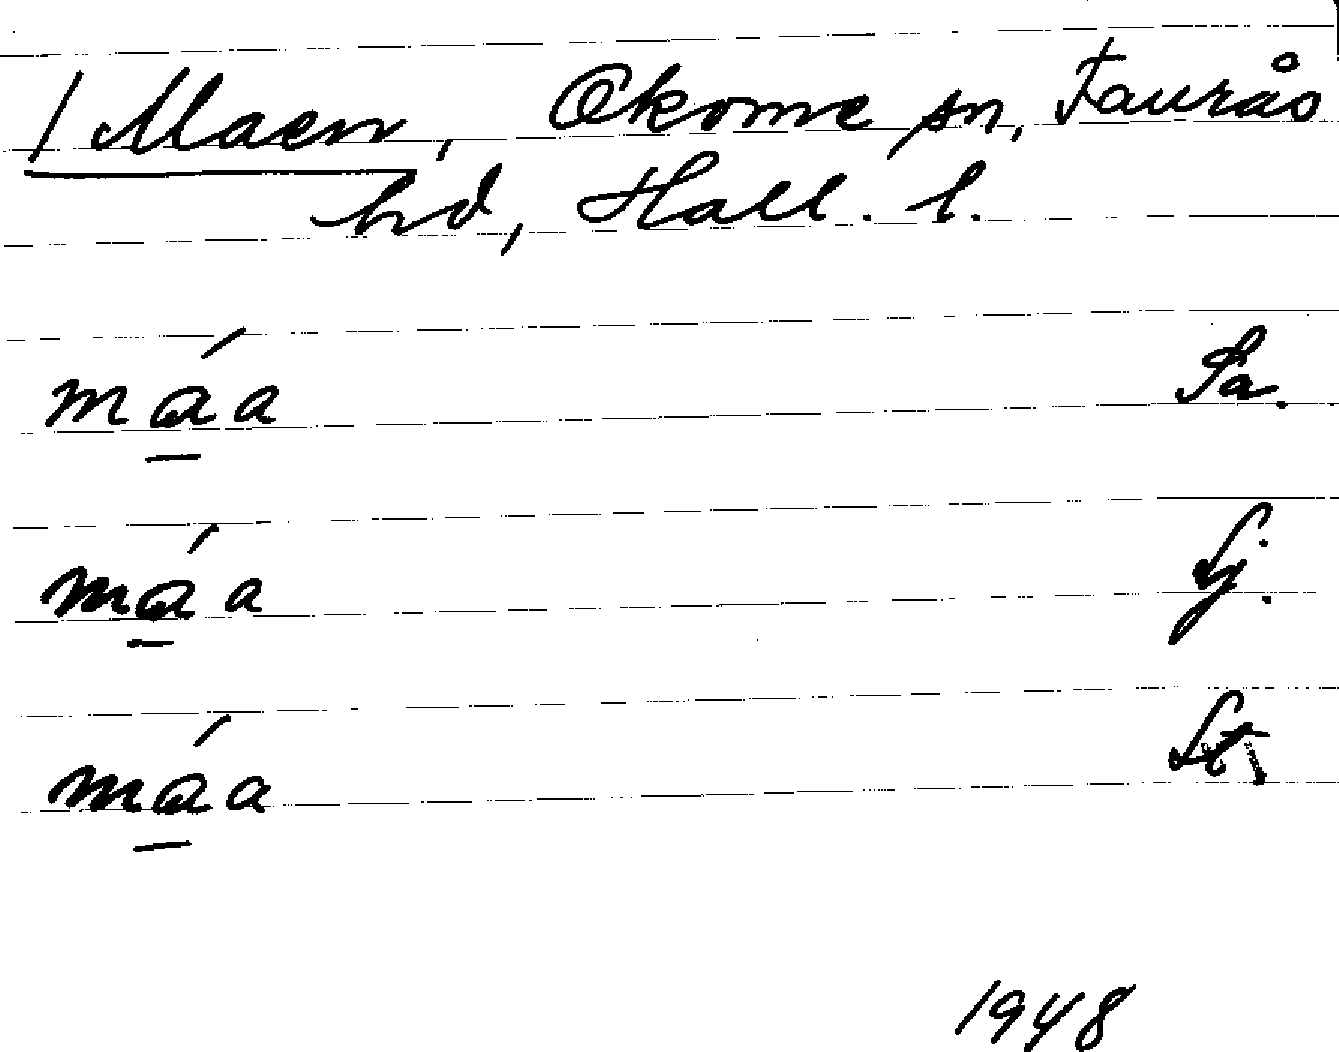 / Maen, Okome sn, Faurås
hd, Hall. l.
má̱a Sa.
má̱a Lj.
má̱a St.
1948